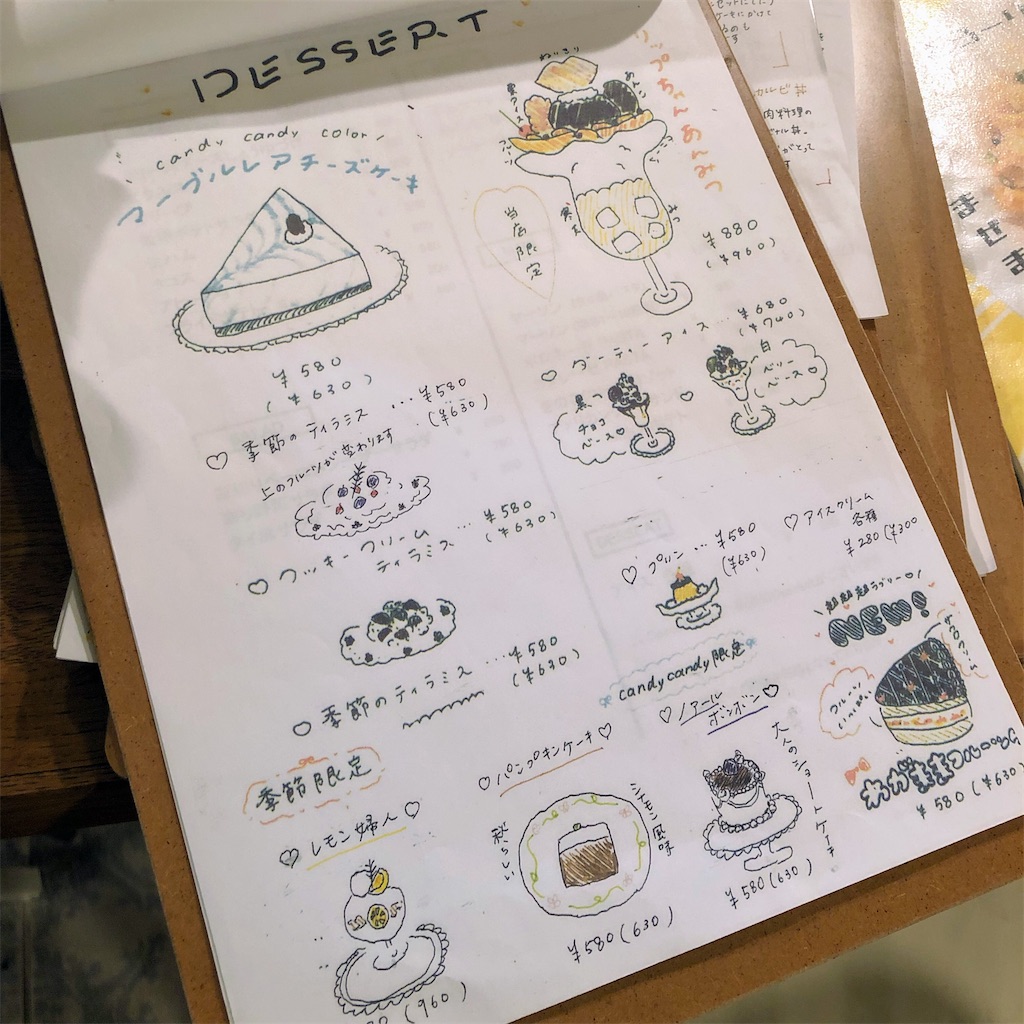 DESSERT
candy candy color
マーブルレアチーズケーキ
¥580
(¥630)
♡ 季節のティラミス …¥580
(¥630)
上のフルーツが変わります
♡ クッキークリーム
ティラミス … ¥580
(¥630)
♡ 季節のティラミス …¥580
(¥630)
季節限定
♡ レモン婦人 ♡
(960)
ップちゃんあんみつ
当店限定
¥880
(¥960)
♡ ダーティーアイス… ¥680
(¥740)
黒っ
チョコ
ベース♡
♡
白
ベリー
ベース♡
♡ プリン … ¥580
(¥630)
♡ アイスクリーム
各種
¥280 (¥300
candycandy限定
♡ パンプキンケーキ ♡
秋らしい
シナモン風味
¥580 (630)
♡ ノアール
ボンボン ♡
大人のショートケーキ
¥580 (630)
超超超ラブリー♡
NEW!
フルーツ
いっぱい
わがままフルーツ
¥580 (¥630)
カルビ丼
肉料理の
まぜま